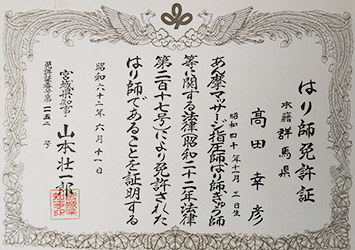 はり師免許証
本籍 群馬県
髙田幸彦
昭和四十年十一月三日生
あん摩マッサージ指圧師はり師きゅう師
等に関する法律(昭和二十二年法律
第二百十七号)により免許された
はり師であることを証明する
昭和六十二年六月十一日
宮城県知事 山本壮一郎